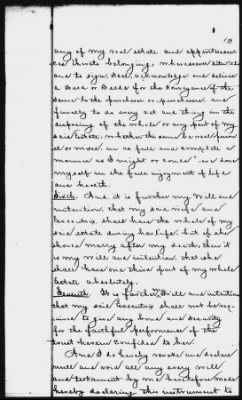 13
any of my real estate and appurtenances
thereto belonging, wheresoever situated
and to sign, seal, acknowledge and deliver
a Deed or Deeds for the conveyance of the
same to the purchaser or purchasers and
finally to do any act and thing in the
disposing of the whole or any part of my
said Estate, whether the same be real, personal
or mixed, in as full and complete a
manner as I might or could do
myself in the full enjoyment of life
and health.
Sixth. And it is further my Will and
intention that my said wife and
Executrix shall have the whole of my
said estate during her life, but if she
should marry after my death, then it
is my will and intention that she
shall have one third part of my whole
Estate absolutely.
Seventh. It is further my Will and intention
that my said Executrix shall not be re-
quired to give any bond and security
for the faithful performance of the
trust herein confided to her.
And I do hereby revoke and declare
null and void all every will
and testament by me heretofore made
hereby declaring this instrument to